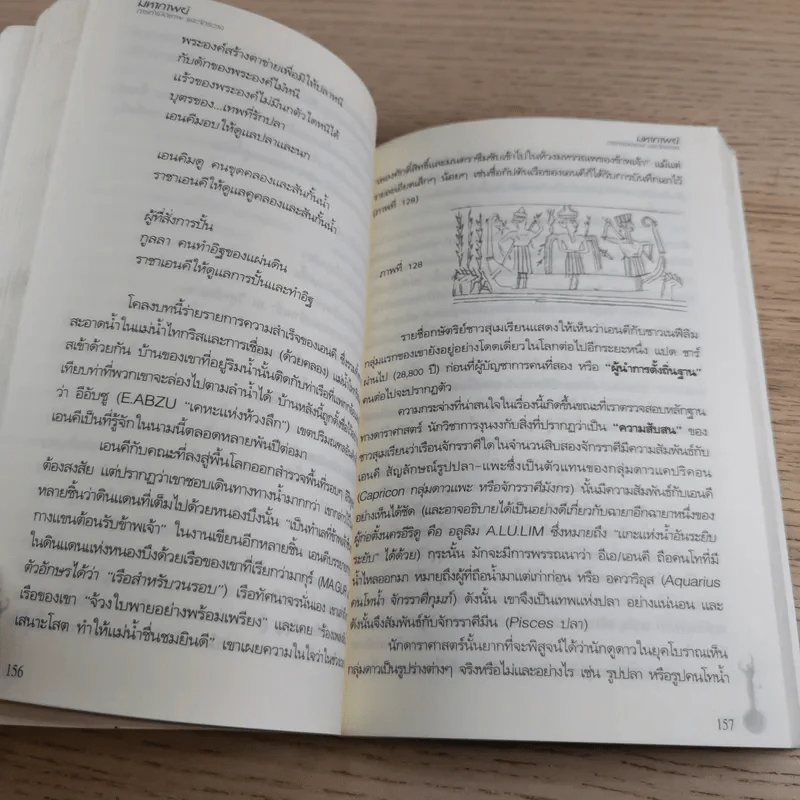 มหากาพย์
พระองค์สร้างตาข่ายเพื่อมิให้ปลาหนี
กับดักของพระองค์ไม่หนี
แร้วของพระองค์ไม่มีนกตัวใดหนีได้
บุตรของ...เทพที่รักปลา
เอนคีมอบให้ดูแลปลาและนก
เอนคิมดู คนขุดคลองและสันกั้นน้ำ
ราชาเอนคีให้ดูแลคูคลองและสันกั้นน้ำ
ผู้ที่สั่งการปั้น
กูลลา คนทำอิฐของแผ่นดิน
ราชาเอนคีให้ดูแลการปั้นและทำอิฐ
โคลงบทนี้ร่ายรายการความสำเร็จของเอนคี ซึ่งรวมทั้ง
สะอาดน้ำในแม่น้ำไทกริสและการเชื่อม (ด้วยคลอง) แม่น้ำ
สเข้าด้วยกัน บ้านของเขาที่อยู่ริมน้ำนั้นติดกับท่าเรือที่แพ
เทียบท่าที่พวกเขาจะล่องไปตามลำน้ำได้ บ้านหลังนี้ถูกตั้งชื่อ
ว่า อีอับซู (E.ABZU "เคหะแห่งห้วงลึก") เขตปริมณฑล
เอนคีเป็นที่รู้จักในนามนี้ตลอดหลายพันปีต่อมา
เอนคีกับคณะที่ลงสู่พื้นโลกออกสำรวจพื้นที่รอบๆ
ต้องสงสัย แต่ปรากฏว่าเขาชอบเดินทางทางน้ำมากกว่า เขากล่าว
หลายชิ้นว่าดินแดนที่เต็มไปด้วยหนองบึงนั้น "เป็นทำเลที่รัก
กางแขนต้อนรับข้าพเจ้า" ในงานเขียนอีกหลายชิ้น เอนคีบรรยาย
ในดินแดนแห่งหนองบึงด้วยเรือของเขาที่เรียกว่ามากุร์ (MA.GUR
ตัวอักษรได้ว่า "เรือสำหรับวนรอบ") เรือทัศนาจรนั่นเอง เขาเล่า
เรือของเขา "จ้วงใบพายอย่างพร้อมเพรียง" และเคย "ร้องเพลง
เสนาะโสต ทำให้แม่น้ำชื่นชมยินดี" เขาเผยความในใจว่าใน
156
มหากาพย์
"เพลงศักดิ์สิทธิ์และมนตราซึมซับเข้าไปในห้วงมหรรณพของข้าพเจ้า" แม้แต่
รายละเอียดเล็กๆ น้อยๆ เช่นชื่อกัปตันเรือของเอนคีก็ได้รับการบันทึกเอาไว้
(ภาพที่ 128)
ภาพที่ 128
รายชื่อกษัตริย์ชาวสุเมเรียนแสดงให้เห็นว่าเอนคีกับชาวเนฟิลิม
กลุ่มแรกของเขายังอยู่อย่างโดดเดี่ยวในโลกต่อไปอีกระยะหนึ่ง แปด ชาร์
ผ่านไป (28,800 ปี) ก่อนที่ผู้บัญชาการคนที่สอง หรือ "ผู้นำการตั้งถิ่นฐาน"
คนต่อไปจะปรากฏตัว
ความกระจ่างที่น่าสนใจในเรื่องนี้เกิดขึ้นขณะที่เราตรวจสอบหลักฐาน
ทางดาราศาสตร์ นักวิชาการงุนงงกับสิ่งที่ปรากฏว่าเป็น "ความสับสน" ของ
ชาวสุเมเรียนว่าเรือนจักรราศีใดในจำนวนสิบสองจักรราศีมีความสัมพันธ์กับ
เอนคี สัญลักษณ์รูปปลา-แพะซึ่งเป็นตัวแทนของกลุ่มดาวแคปริคอน
(Capricon กลุ่มดาวแพะ หรือจักรราศีมังกร) นั้นมีความสัมพันธ์กับเอนคี
อย่างเห็นได้ชัด (และอาจอธิบายได้เป็นอย่างดีเกี่ยวกับฉายาอีกฉายาหนึ่งของ
ผู้ก่อตั้งนครอีริดู คือ อลูลิม A.LU.LIM ซึ่งหมายถึง "แกะแห่งน้ำอันระยิบ
ระยับ" ได้ด้วย) กระนั้น มักจะมีการพรรณนาว่า อีเอ/เอนคี ถือคนโทที่มี
น้ำไหลออกมา หมายถึงผู้ที่ถือน้ำมาแต่เก่าก่อน หรือ อควาริอุส (Aquarius
คนโทน้ำ จักรราศีกุมภ์) ดังนั้น เขาจึงเป็นเทพแห่งปลา อย่างแน่นอน และ
ดังนั้นจึงสัมพันธ์กับจักรราศีมีน (Pisces ปลา)
นักดาราศาสตร์นั้นยากที่จะพิสูจน์ได้ว่านักดูดาวในยุคโบราณเห็น
กลุ่มดาวเป็นรูปร่างต่างๆ จริงหรือไม่และอย่างไร เช่น รูปปลา หรือรูปคนโทน้ำ
157